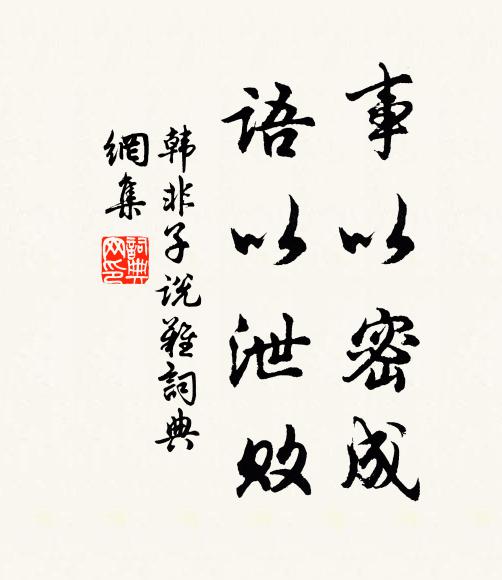 事以密成
语以泄败
韩非子说难詞典
網集
詞典
网印